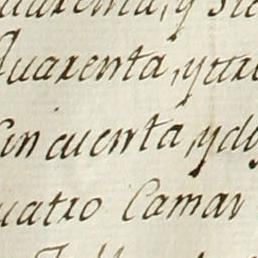 Quarenta, y
Quarenta, y tre
Cin cuenta, y dos
uatro Camar